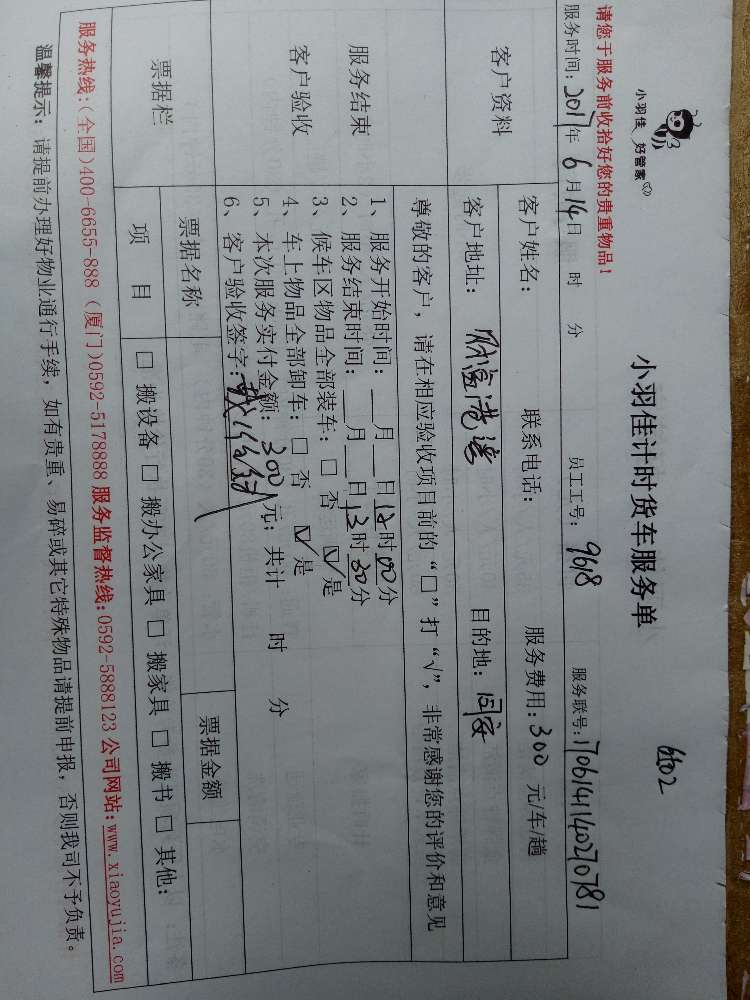 6602
小羽佳 好管家
小羽佳计时货车服务单
请您于服务前收拾好您的贵重物品!
服务时间: 2017年 6月14日 时 分 员工工号: 9618 服务联号: 1706141140270781
客户资料 客户姓名: 联系电话: 服务费用: 300 元/车/趟
客户地址: 财富港湾 目的地: 同安
服务结束
客户验收
尊敬的客户，请在相应验收项目前的“□”打“√”，非常感谢您的评价和意见
1、服务开始时间: __月__日12时00分
2、服务结束时间: __月__日13时30分
3、候车区物品全部装车: □ 否 ☑ 是
4、车上物品全部卸车: □ 否 ☑ 是
5、本次服务实付金额: 300 元; 共计 时 分
6、客户验收签字:
票据栏 票据名称 票据金额
项 目 □ 搬设备 □ 搬办公家具 □ 搬家具 □ 搬书 □ 其他:
服务热线:(全国)400-6655-888 (厦门)0592-5178888 服务监督热线:0592-5888123 公司网站:www.xiaoyujia.com
温馨提示: 请提前办理好物业通行手续，如有贵重、易碎或其它特殊物品请提前申报，否则我司不予负责。